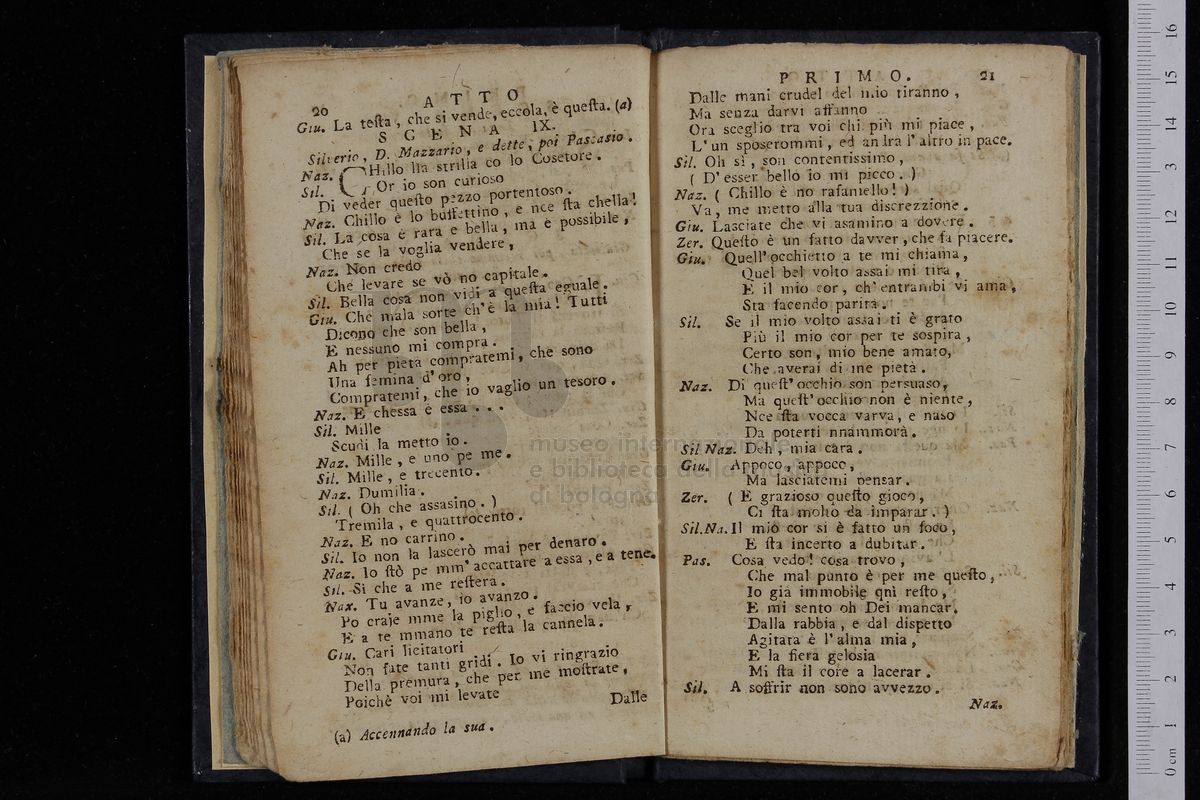 20 ATTO
Giu. La testa, che si vende, eccola, è questa. (a)
SCENA IX.
Silverio, D. Mazzario, e dette, poi Pascasio.
Naz. CHillo lla strilia co lo Cosetore.
Sil. Or io son curioso
Di veder questo pezzo portentoso.
Naz. Chillo è lo buffettino, e nce sta chella!
Sil. La cosa è rara e bella, ma è possibile,
Che se la voglia vendere,
Naz. Non credo
Che levare se vò no capitale.
Sil. Bella cosa non vidi a questa eguale.
Giu. Che mala sorte ch'è la mia! Tutti
Dicono che son bella,
E nessuno mi compra.
Ah per pietà compratemi, che sono
Una femina d'oro,
Compratemi, che io vaglio un tesoro.
Naz. E chessa è essa . . .
Sil. Mille
Scudi la metto io.
Naz. Mille, e uno pe me.
Sil. Mille, e trecento.
Naz. Dumilia.
Sil. ( Oh che assasino. )
Tremila, e quattrocento.
Naz. E no carrino.
Sil. Io non la lascerò mai per denaro.
Naz. Io stò pe mm'accattare a essa, e a tene.
Sil. Sì che a me resterà.
Naz. Tu avanze, io avanzo.
Po craje mme la piglio, e faccio vela,
E a te mmano te resta la cannela.
Giu. Cari licitatori
Non fate tanti gridi. Io vi ringrazio
Della premura, che per me mostrate,
Poichè voi mi levate
Dalle
(a) Accennando la sua.
PRIMO. 21
Dalle mani crudel del mio tiranno,
Ma senza darvi affanno
Ora sceglio tra voi chi più mi piace,
L'un sposerommi, ed andra l'altro in pace.
Sil. Oh sì, son contentissimo,
( D'esser bello io mi picco. )
Naz. ( Chillo è no rafaniello! )
Va, me metto alla tua discrezzione.
Giu. Lasciate che vi asamino a dovere.
Zer. Questo è un fatto davver, che fa piacere.
Giu. Quell'occhietto a te mi chiama,
Quel bel volto assai mi tira,
E il mio cor, ch'entrambi vi ama,
Sta facendo parità.
Sil. Se il mio volto assai ti è grato
Più il mio cor per te sospira,
Certo son, mio bene amato,
Che averai di me pietà.
Naz. Di quest'occhio son persuaso,
Ma quest'occhio non è niente,
Nce sta vocca varva, e naso
Da poterti nnammorà.
Sil Naz. Deh, mia cara.
Giu. Appoco, appoco,
Ma lasciatemi pensar.
Zer. ( E grazioso questo gioco,
Ci sta molto da imparar. )
Sil. Na. Il mio cor si è fatto un foco,
E sta incerto a dubitar.
Pas. Cosa vedo! cosa trovo,
Che mal punto è per me questo,
Io già immobile quì resto,
E mi sento oh Dei mancar.
Dalla rabbia, e dal dispetto
Agitata è l'alma mia,
E la fiera gelosia
Mi sta il core a lacerar.
Sil. A soffrir non sono avvezzo.
Naz.
museo internazionale
e biblioteca della musica
di bologna
0 cm 1 2 3 4 5 6 7 8 9 10 11 12 13 14 15 16